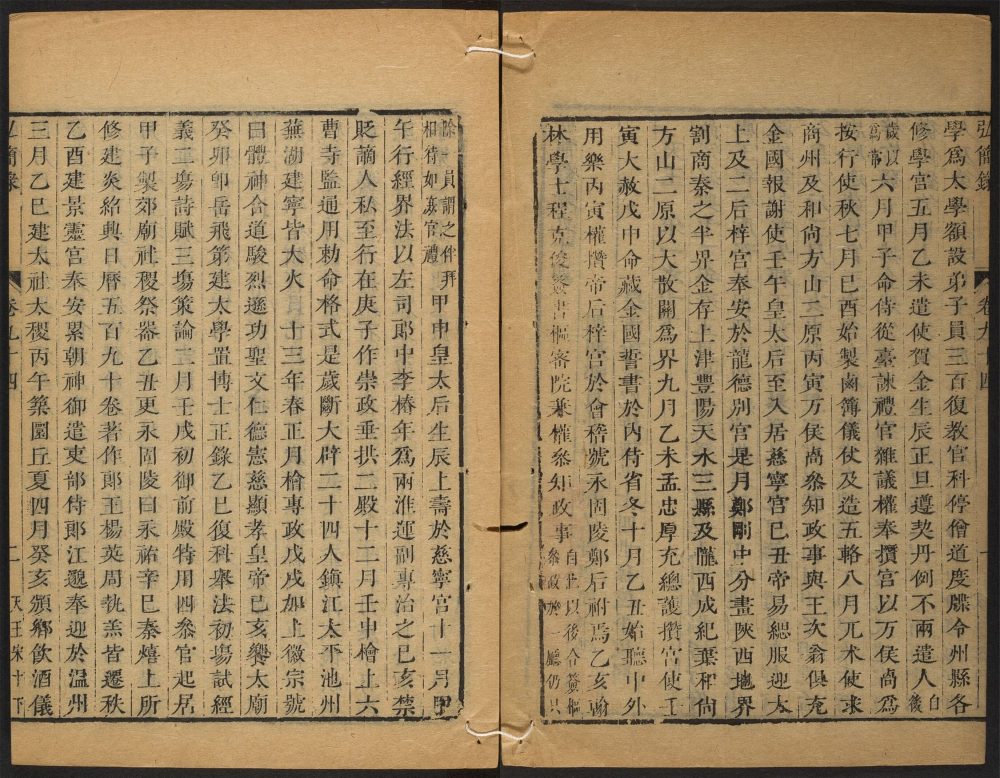 弘簡錄
卷九十四
學爲太學額設弟子員三百復教官科停僧道度牒令州縣各
修學宮五月乙未遣使賀金生辰正旦遵契丹例不兩遣人自後
歲以爲常六月甲子命侍從臺諫禮官雜議權奉攢宮以万俟卨爲
按行使秋七月己酉始製鹵簿儀仗及造五輅八月兀朮使求
商州及和尙方山二原丙寅万俟卨參知政事與王次翁俱充
金國報謝使壬午皇太后至入居慈寧宮己丑帝易緦服迎太
上及二后梓宮奉安於龍德別宮是月鄭剛中分畫陝西地界
割商秦之半界金存上津豐陽天水三縣及隴西成紀棄和尙
方山二原以大散關爲界九月乙未孟忠厚充總護攢宮使壬
寅大赦戊申命藏金國誓書於內侍省冬十月乙丑始聽中外
用樂丙寅權攢帝后梓宮於會稽號永固陵鄭后祔焉乙亥翰
林學士程克俊簽書樞密院兼權參知政事自此以後令簽樞參政於一廳仍只
除一員謂之伴拜相待如嘉官禮甲申皇太后生辰上壽於慈寧宮十一月甲
午行經界法以左司郎中李椿年爲兩淮運副專治之己亥禁
貶謫人私至行在庚子作崇政垂拱二殿十二月壬申檜上六
曹寺監通用勅命格式是歲斷大辟二十四人鎭江太平池州
蕪湖建寧皆大火 十三年春正月檜專政戊戌加上徽宗號
曰體神合道駿烈遜功聖文仁德憲慈顯孝皇帝己亥饗太廟
癸卯卽岳飛第建太學置博士正錄乙巳復科舉法初場試經
義二場詩賦三場策論二月壬戌初御前殿特用四參官起居
甲子製郊廟社稷祭器乙丑更永固陵曰永祐辛巳秦熺上所
修建炎紹興日曆五百九十卷著作郎王楊英周執羔皆遷秩
乙酉建景靈宮奉安累朝神御遣吏部侍郎江邈奉迎於温州
三月乙巳建太社太稷丙午築圜丘夏四月癸亥頒鄉飮酒儀
弘簡錄
卷九十四
二
天王宋十下